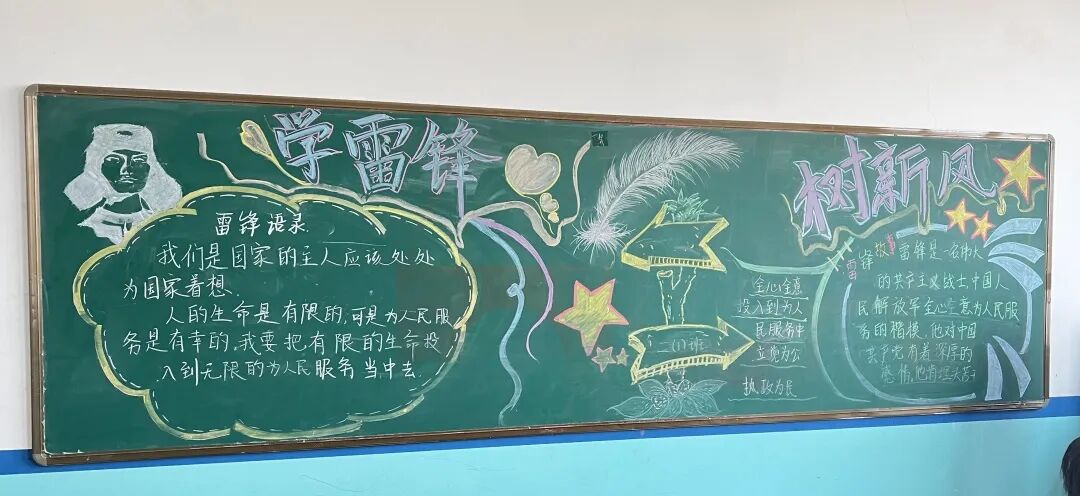 学雷锋
树新风
雷锋语录
我们是国家的主人应该处处
为国家着想.
人的生命是有限的,可是为人民服
务是有幸的,我要把有限的生命投
入到无限的为人民服务当中去.
二(1)班
全心全意
投入到为人
民服务中
立党为公
执政为民
雷锋
雷锋是一名伟大
的共产主义战士,中国人
民解放军全心全意为人民服
务的楷模,他对中国
共产党有着深厚的
感情,他肯埋头苦干